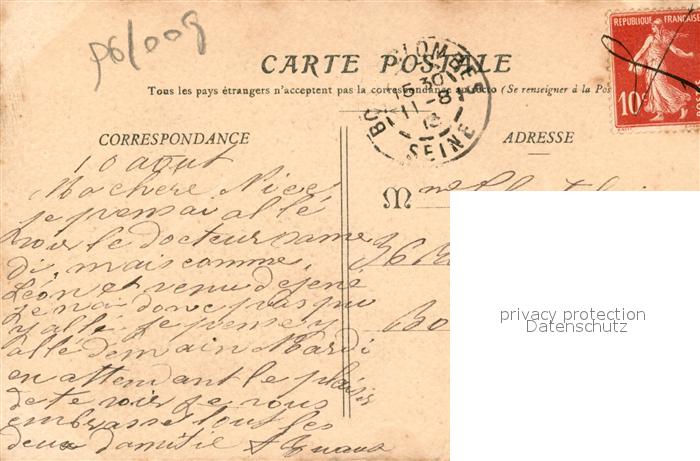 96/009
CARTE POSTALE
Tous les pays étrangers n'acceptent pas la correspondance au recto (Se renseigner à la Pos
REPUBLIQUE FRANÇAISE
10c
COLOMBES
15 30
11-8
13
SEINE
CORRESPONDANCE
10 aout
Ma chere Niece
je pensai allé
voir le docteur same
di, mais comme
Léon et venu dejené
je nai donc pas pu
y allé je pense y
allé demain Mardi
en attendant le plaisir
de te voir je vous
embrasse tout les
deux damitié
ADRESSE
Mme
36 R
Bo
privacy protection
Datenschutz